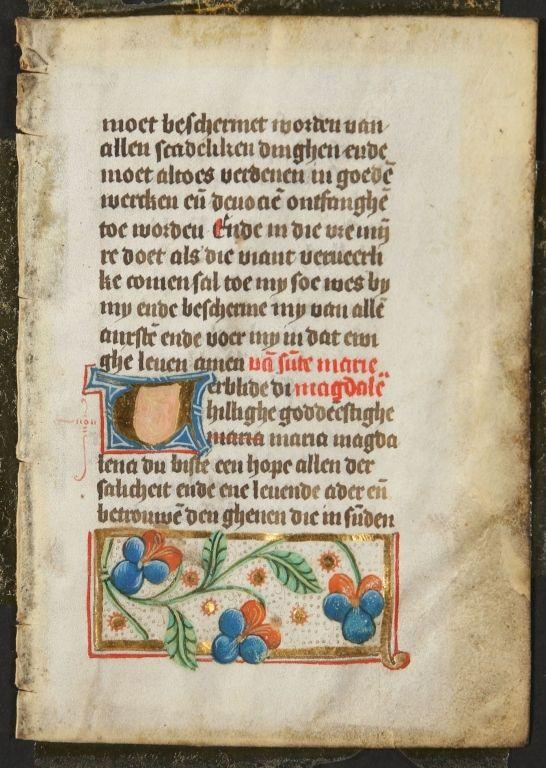 moet beschermet worden van
allen scadeliken dinghen ende
moet altoes verdenen in goedē
wercken eñ deuociē ontfanghē
toe worden Ende in die vre mÿ
re doet als die viant verueerli
ke comen sal toe my soe wes by
my ende bescherme my van allē
anxstē ende voer my in dat ewi
ghe leuen amen vā sūte marie
Uerblide di magdalē
hillighe goddeestighe
maria maria magda
lena du biste een hope allen der
salicheit ende ene leuende ader eñ
betrouwē den ghenen die in sūden